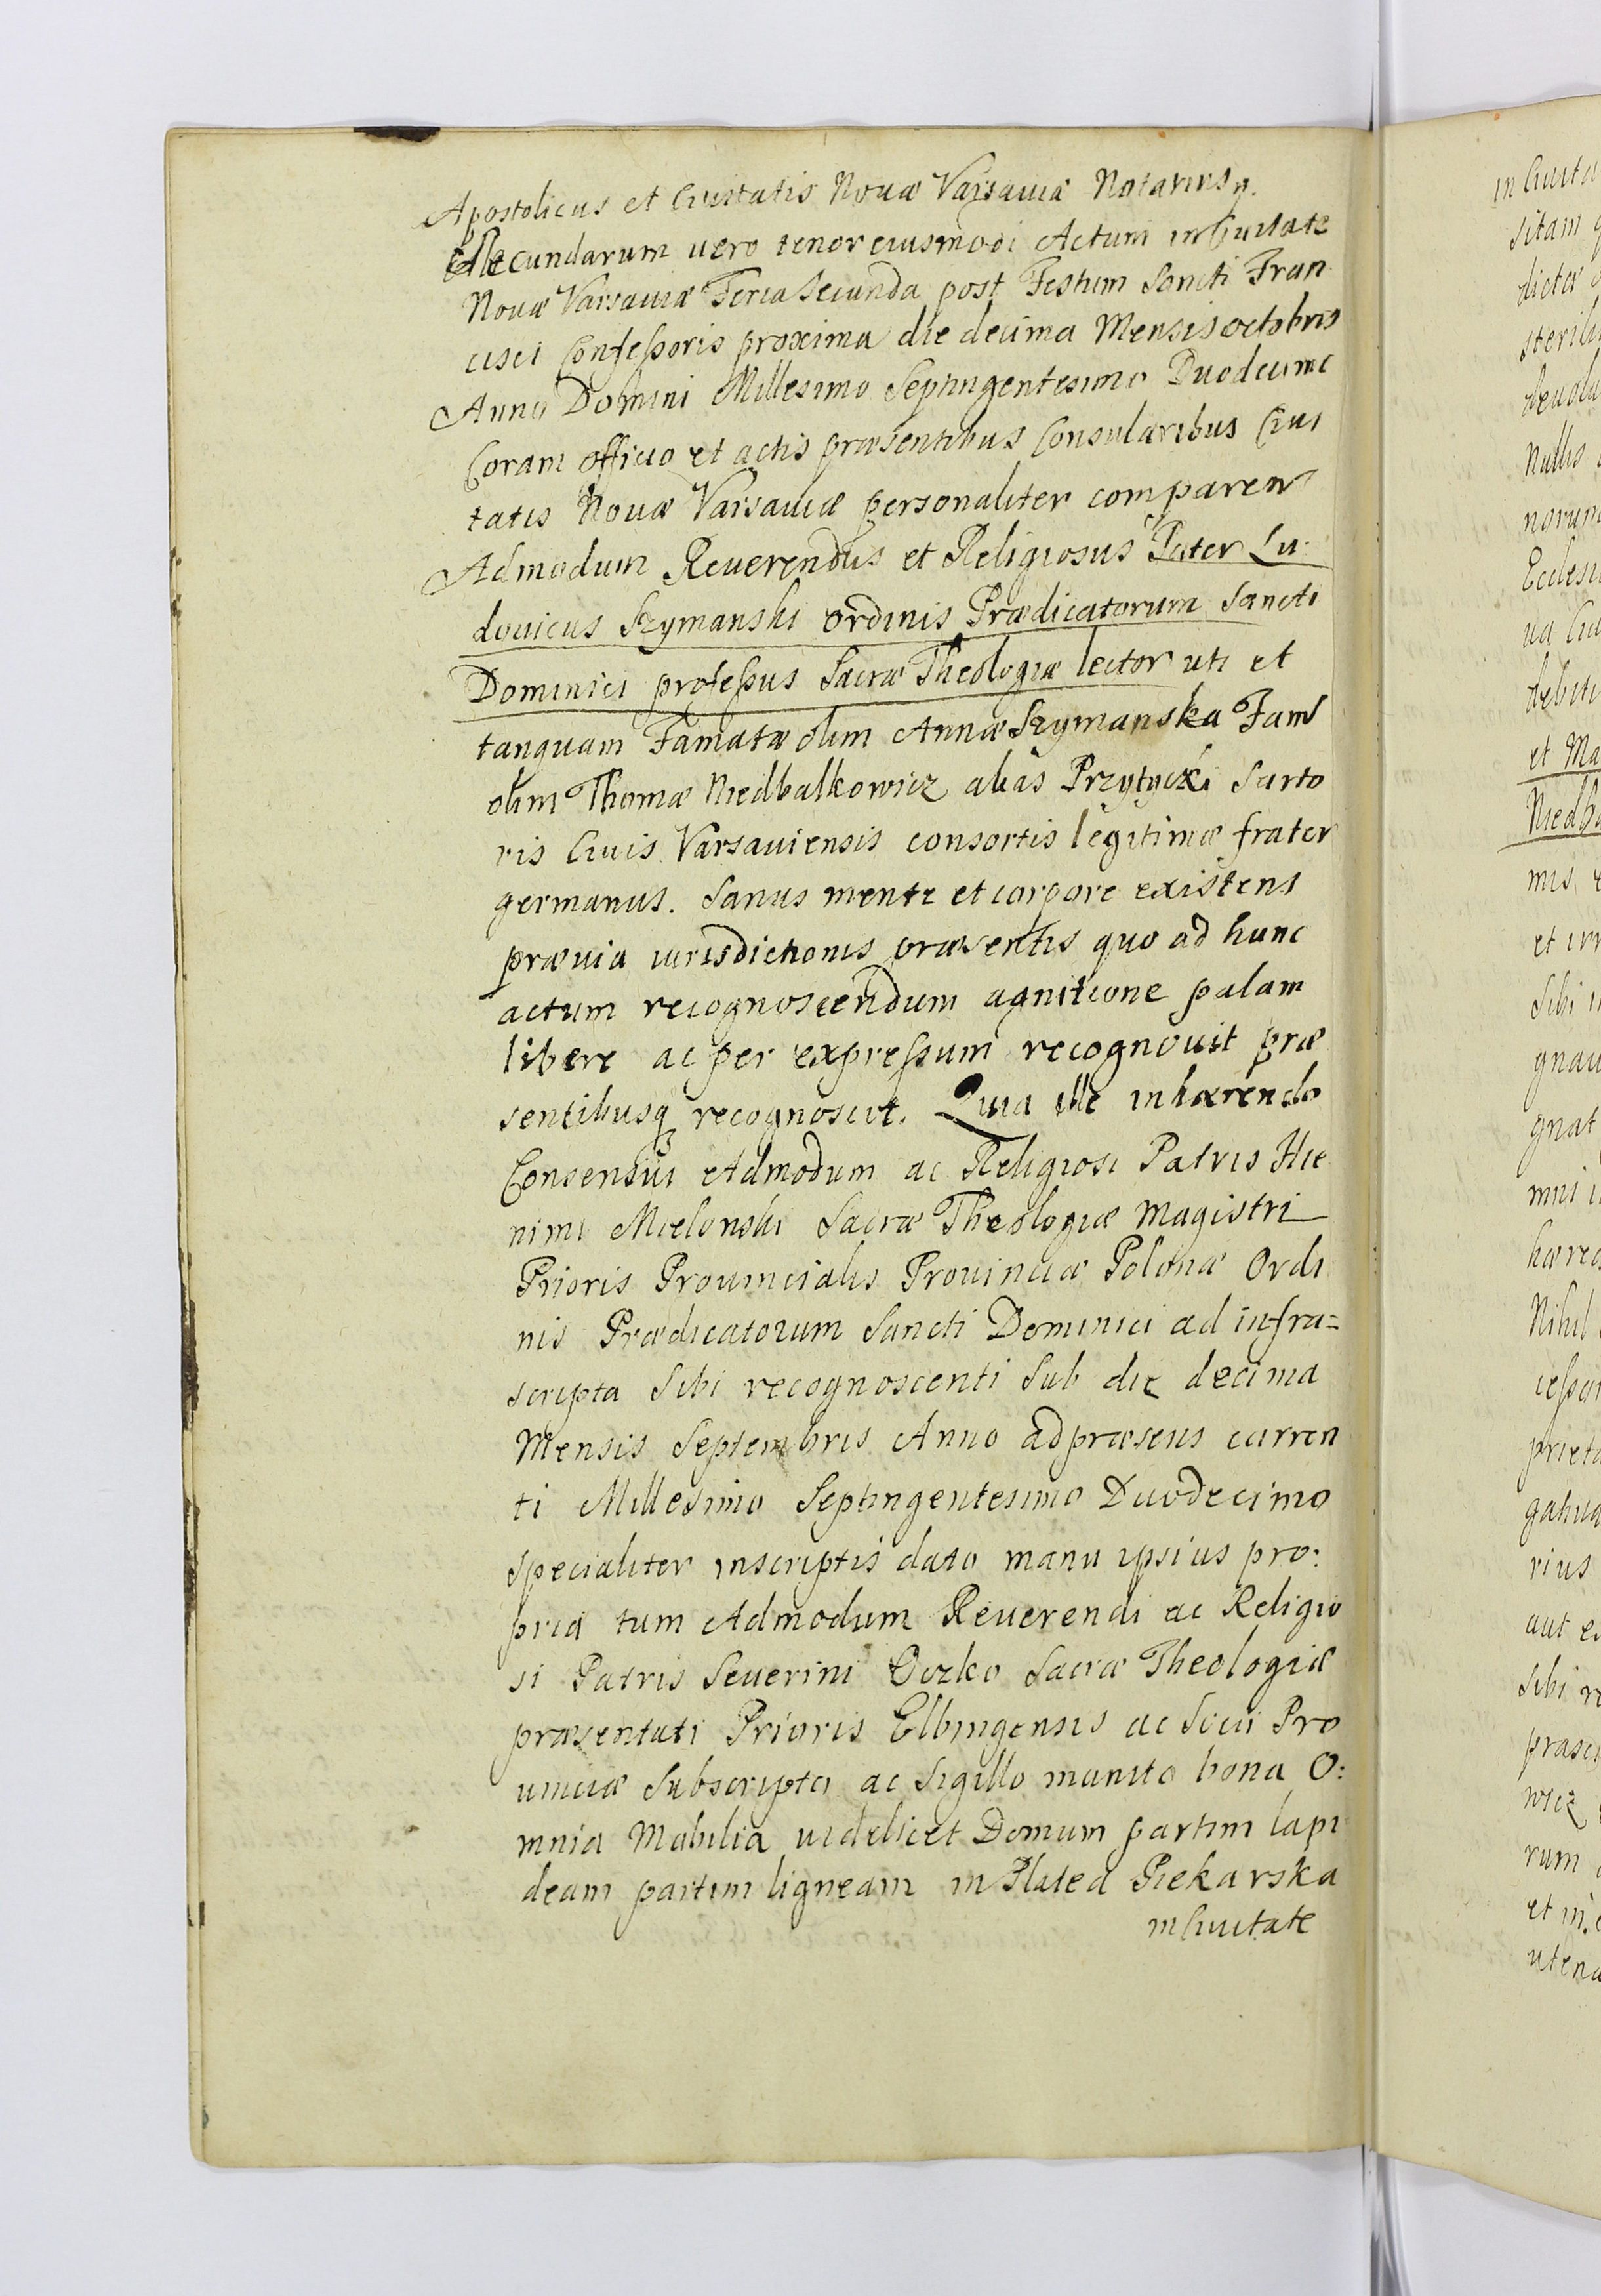 Apostolicus et Ciuitatis Nouæ Varsauiæ Notarius
Secundarum uero tenor eiusmodi Actum in Ciuitate
Nouæ Varsauiæ Feria Secunda post Festum Sancti Fran
cisci Confeßoris proxima die decima Mensis octobris
Anno Domini Millesimo Septingentesimo Duodecimo
Coram officio et actis præsentibus Consularibus Ciui
tatis Nouæ Varsauiæ personaliter comparens
Admodum Reuerendus et Religiosus Pater Lu:
douicus Szymanski ordinis Prædicatorum Sancti
Dominici profeßus Sacræ Theologiæ lector uti et
tanquam Famatæ olim Annæ Szymanska Fami
olim Thomæ Niedbalkowicz alias Przytycki Sarto
ris Ciuis Varsauiensis consortis legitimæ frater
germanus. Sanus mente et corpore existens
præuia iurisdictionis præsentis quo ad hunc
actum recognoscendum agnitione palam
libere ac per expreßum recognouit præ
sentibusq recognoscit. Quia ille inhærendo
Consensui Admodum ac Religiosi Patris Hie
nimi Mielonski Sacræ Theologiæ Magistri
Prioris Prouincialis Prouinciæ Polonæ Ordi
nis Prædicatorum Sancti Dominici ad infra=
scripta Sibi recognoscenti Sub die decima
Mensis Septembris Anno ad præsens curren
ti Millesimo Septingentesimo Duodecimo
Specialiter inscriptis dato manu ipsius pro:
pria tum Admodum Reuerendi ac Religio
si Patris Seuerini Oczko Sacræ Theologiæ
præsentati Prioris Elbingensis ac Socii Pro
uinciæ Subscripto ac Sigillo munito bona O:
mnia Mobilia uidelicet Domum partim lapi
deam partim ligneam in Platea Piekarska
in Ciuitate